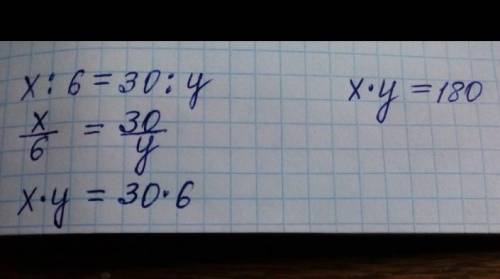 x : 6 = 30 : y
x/6 = 30/y
x·y = 30·6
x·y = 180